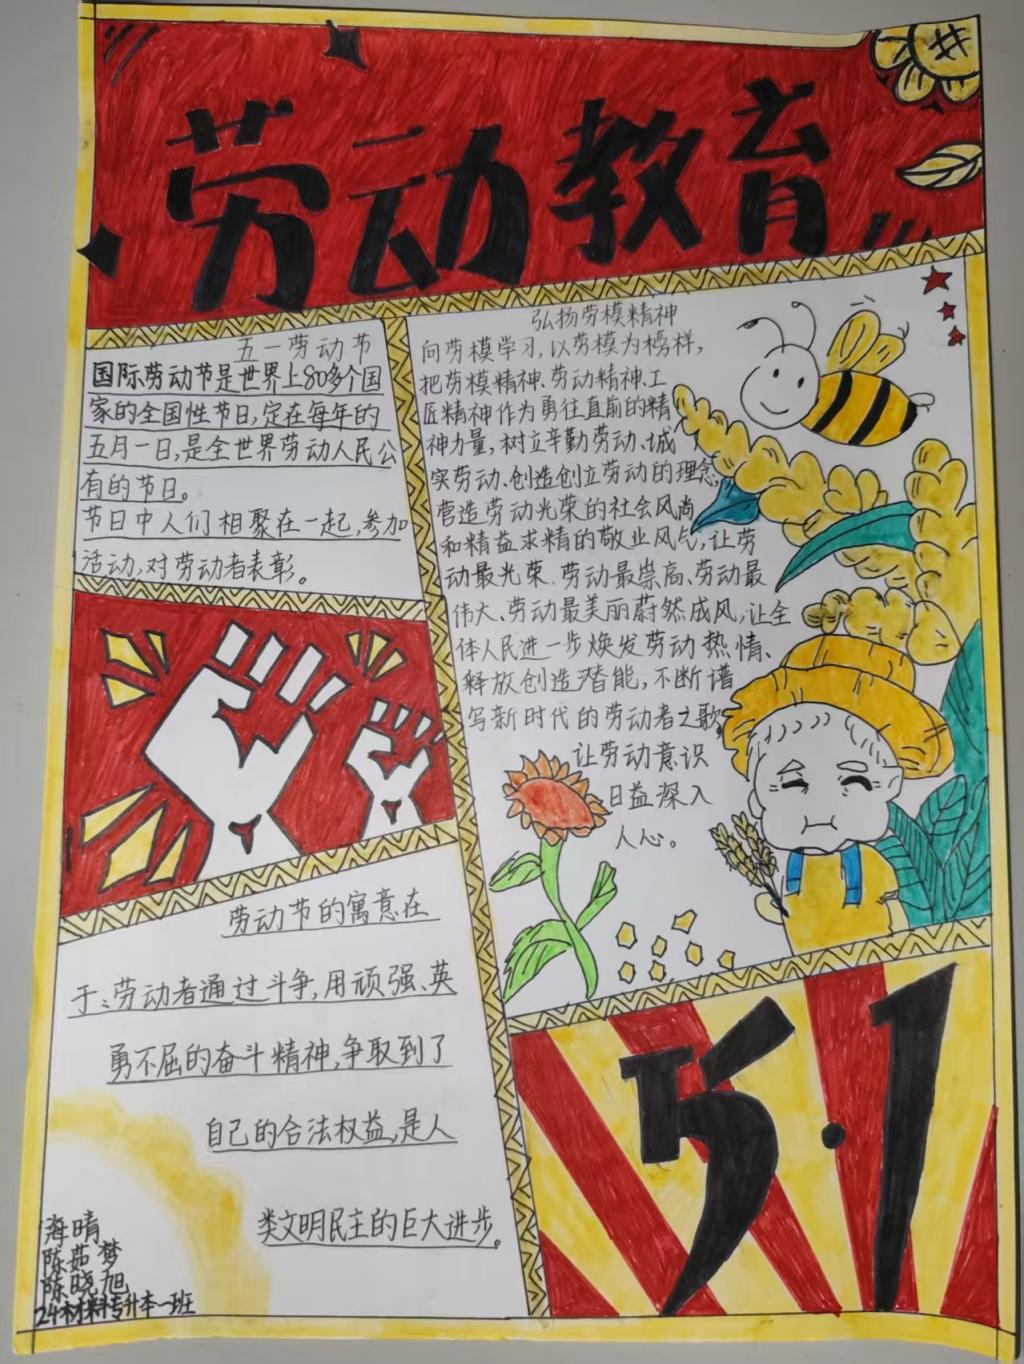 劳动教育
五一劳动节
国际劳动节是世界上80多个国
家的全国性节日,定在每年的
五月一日,是全世界劳动人民公
有的节日。
节日中人们相聚在一起,参加
活动,对劳动者表彰。
弘扬劳模精神
向劳模学习,以劳模为榜样,
把劳模精神、劳动精神、工
匠精神作为勇往直前的精
神力量,树立辛勤劳动、诚
实劳动、创造创立劳动的理念,
营造劳动光荣的社会风尚
和精益求精的敬业风气,让劳
动最光荣、劳动最崇高、劳动最
伟大、劳动最美丽蔚然成风,让全
体人民进一步焕发劳动热情、
释放创造潜能,不断谱
写新时代的劳动者之歌,
让劳动意识
日益深入
人心。
劳动节的寓意在
于:劳动者通过斗争,用顽强、英
勇不屈的奋斗精神,争取到了
自己的合法权益,是人
类文明民主的巨大进步。
5·1
海晴
陈茹梦
陈晓旭
24材料专升本一班